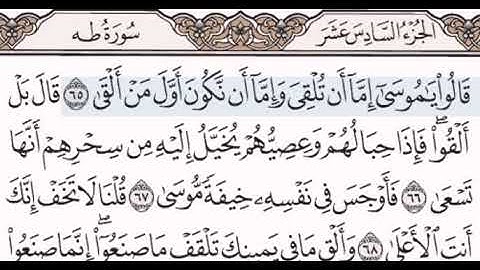 الجزء السادس عشر سورة طه
قَالُوا۟ يَـٰمُوسَىٰٓ إِمَّآ أَن تُلْقِىَ وَإِمَّآ أَن نَّكُونَ أَوَّلَ مَنْ أَلْقَىٰ ٦٥ قَالَ بَلْ
أَلْقُوا۟ۖ فَإِذَا حِبَالُهُمْ وَعِصِيُّهُمْ يُخَيَّلُ إِلَيْهِ مِن سِحْرِهِمْ أَنَّهَا
تَسْعَىٰ ٦٦ فَأَوْجَسَ فِى نَفْسِهِۦ خِيفَةً مُّوسَىٰ ٦٧ قُلْنَا لَا تَخَفْ إِنَّكَ
أَنتَ ٱلْأَعْلَىٰ ٦٨ وَأَلْقِ مَا فِى يَمِينِكَ تَلْقَفْ مَا صَنَعُوٓا۟ۖ إِنَّمَا صَنَعُوا۟